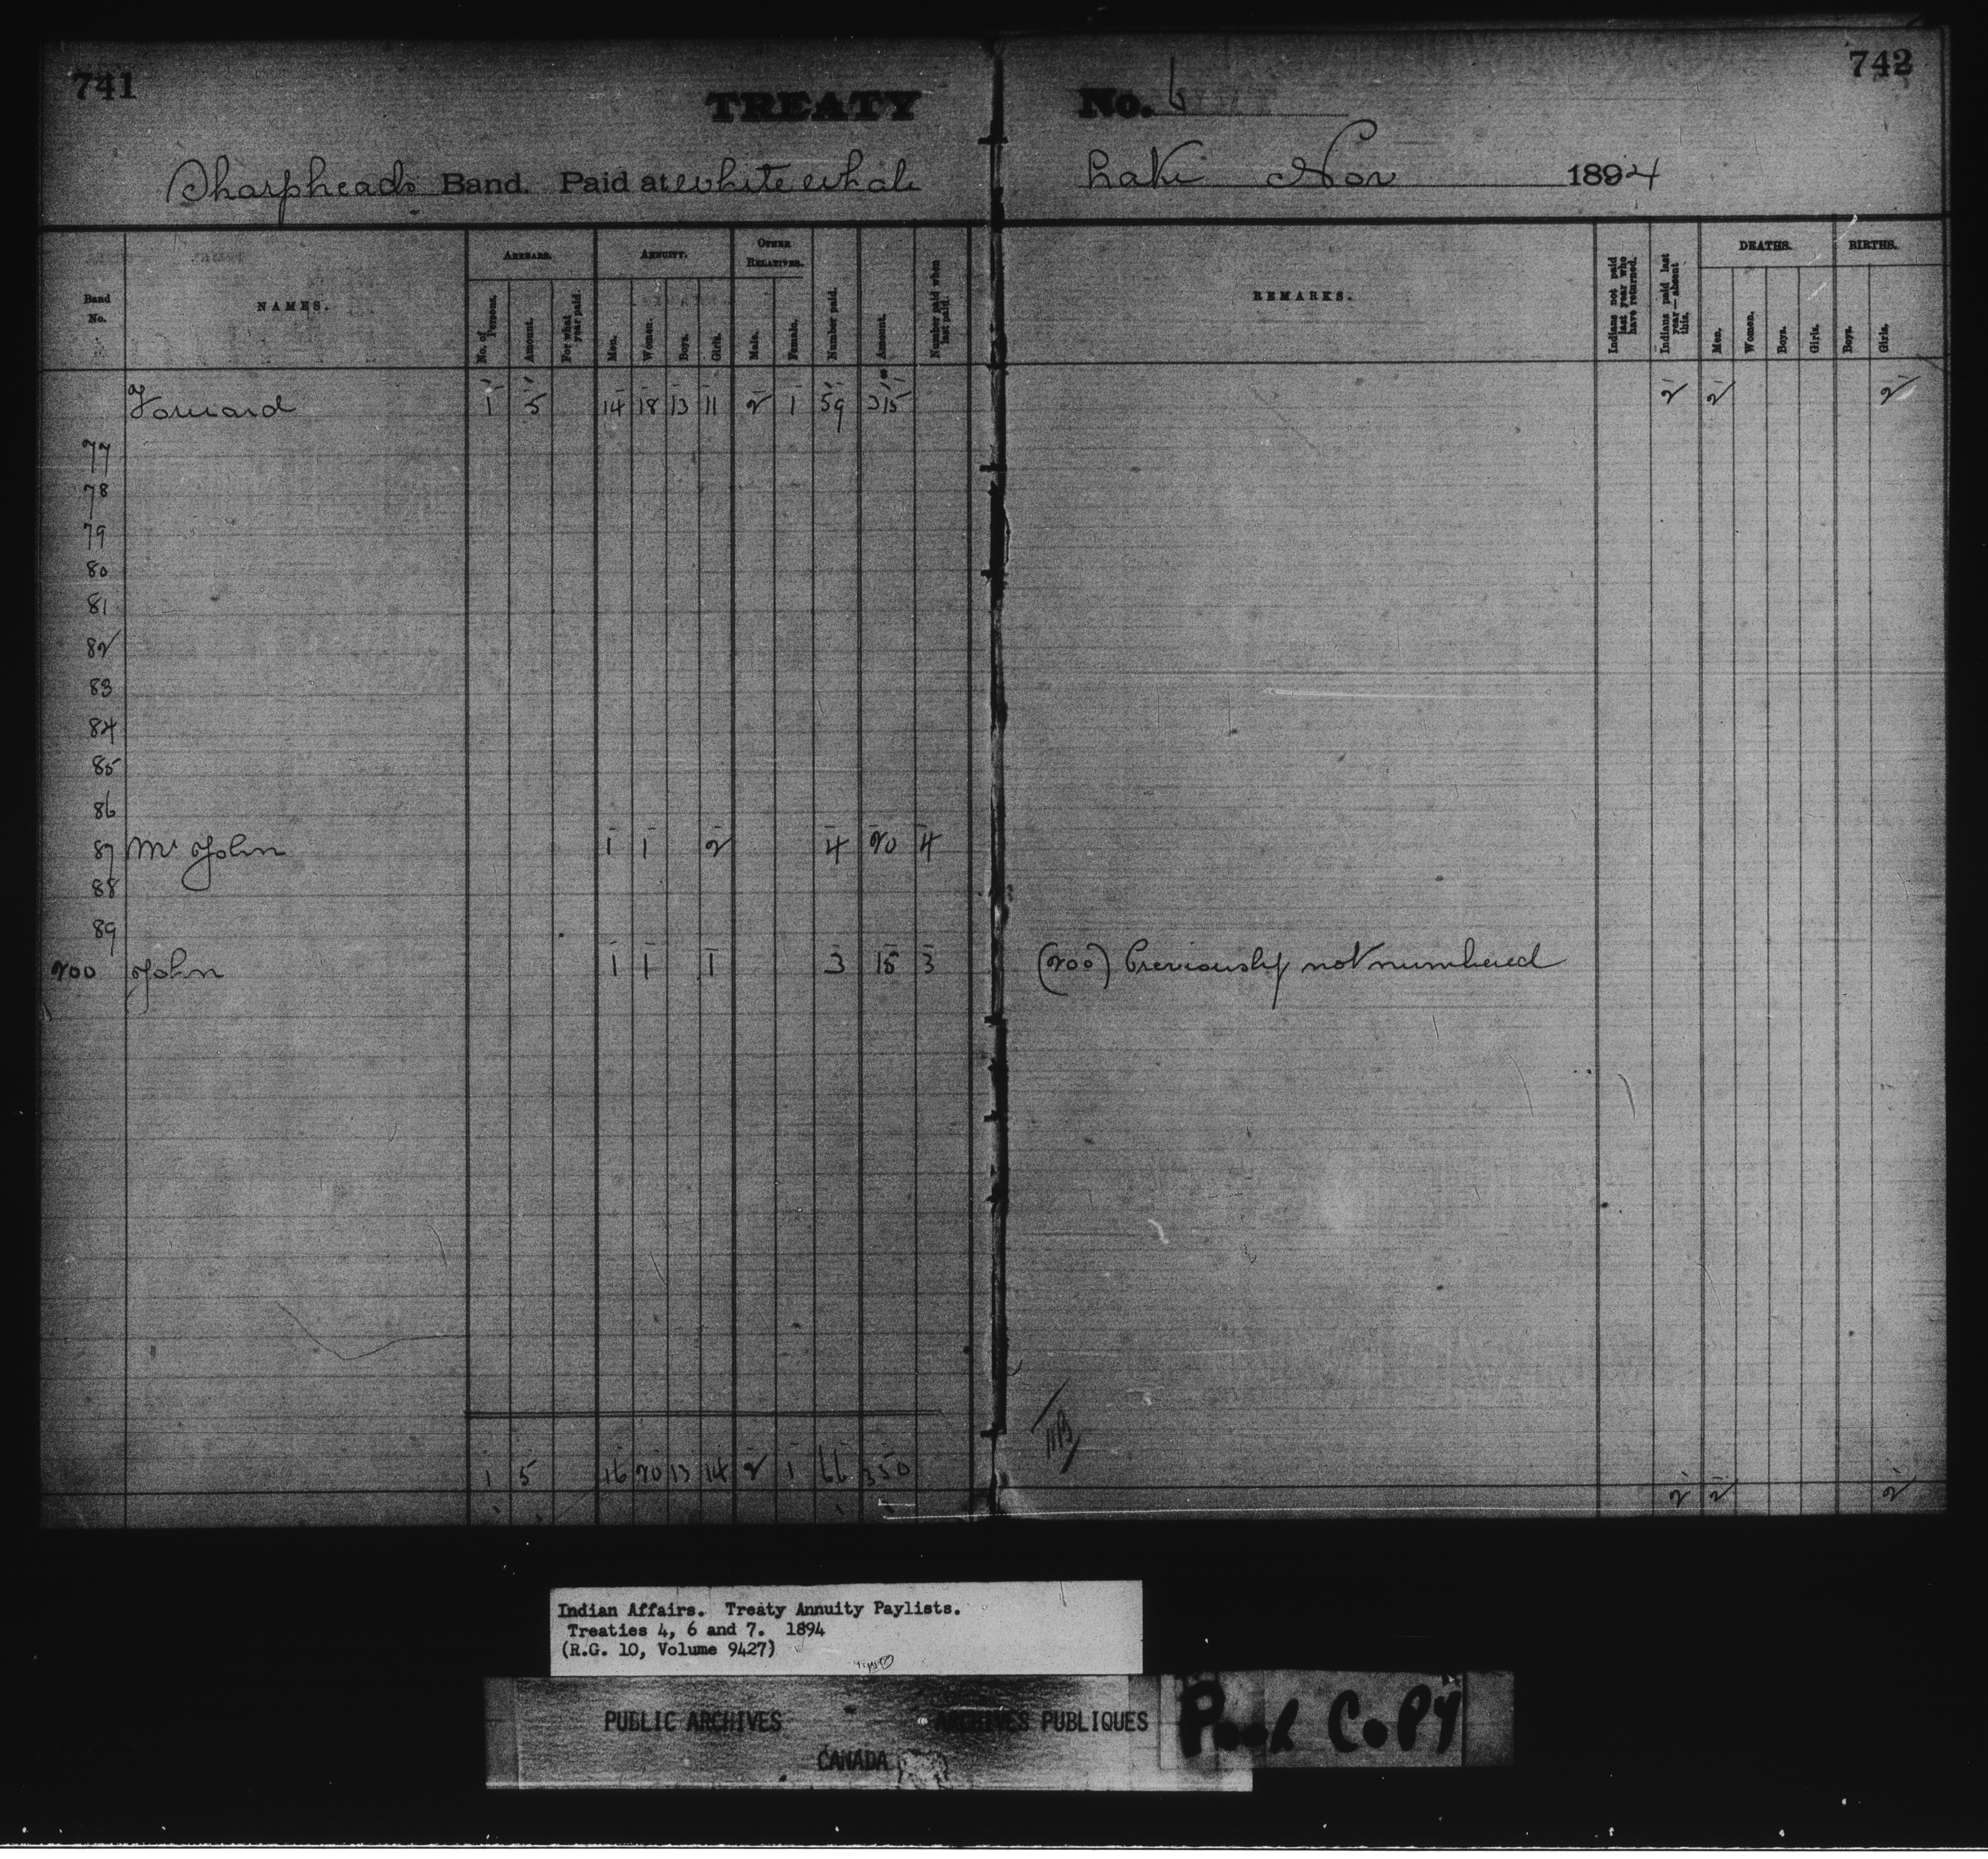 741
742
TREATY No. 6
Sharphead's Band. Paid at White Whale Lake Nov 1894
Band No.
NAMES.
ARREARS.
No. of Persons.
Amount.
For what year paid.
ANNUITY.
Men.
Women.
Boys.
Girls.
OTHER RELATIVES.
Male.
Female.
Number paid.
Amount.
Number paid when last paid.
REMARKS.
Indians not paid last year who have returned.
Indians paid last year—absent this.
DEATHS.
Men.
Women.
Boys.
Girls.
BIRTHS.
Boys.
Girls.
Forward 1 5 14 18 13 11 2 1 59 315 2 2 2
77
78
79
80
81
82
83
84
85
86
87 Mr John 1 1 2 4 20 4
88
89
200 John 1 1 1 3 15 3 (200) Previously not numbered
1 5 16 20 13 14 2 1 66 350
2 2 2
Indian Affairs. Treaty Annuity Paylists.
Treaties 4, 6 and 7. 1894
(R.G. 10, Volume 9427)
PUBLIC ARCHIVES ARCHIVES PUBLIQUES
CANADA
Poor Copy